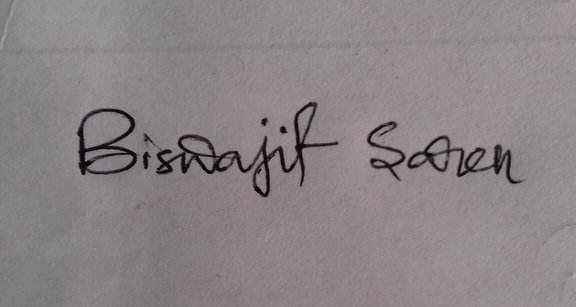 Biswajit Soren